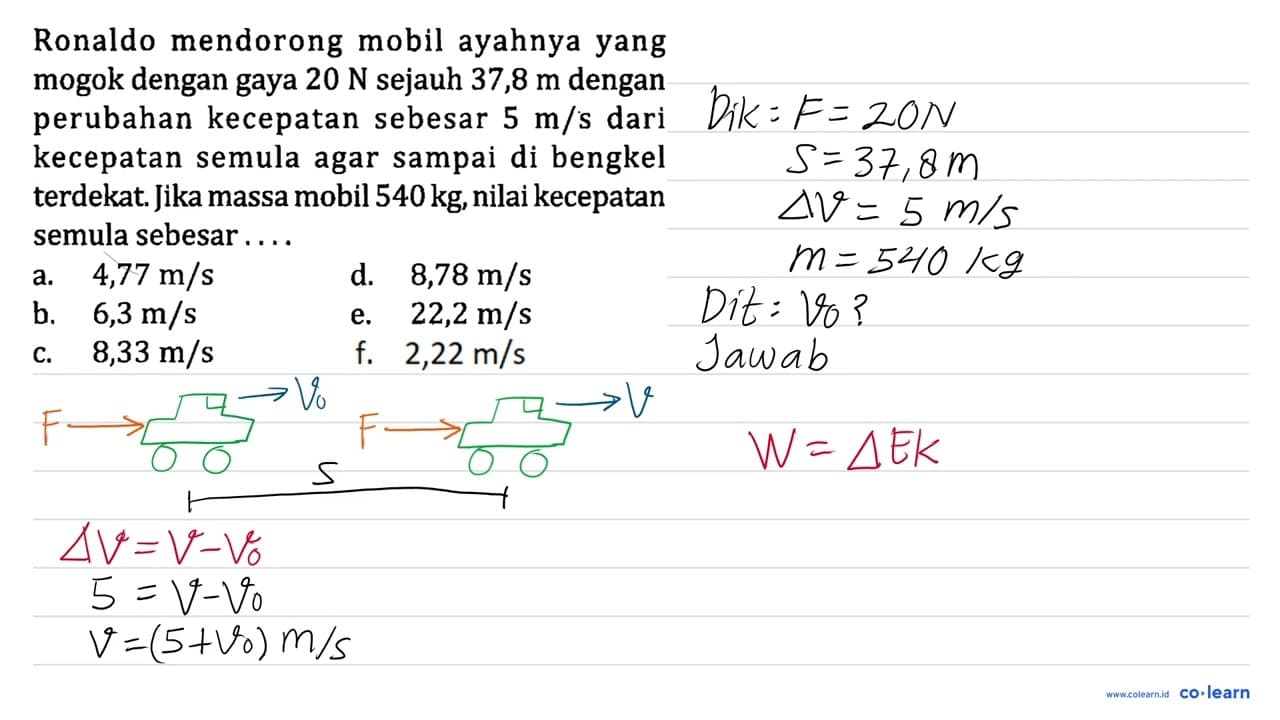 Ronaldo mendorong mobil ayahnya yang
mogok dengan gaya 20 N sejauh 37,8 m dengan
perubahan kecepatan sebesar 5 m/s dari
kecepatan semula agar sampai di bengkel
terdekat. Jika massa mobil 540 kg, nilai kecepatan
semula sebesar . . . .
a. 4,77 m/s d. 8,78 m/s
b. 6,3 m/s e. 22,2 m/s
c. 8,33 m/s f. 2,22 m/s
Dik : F = 20N
S = 37,8 m
ΔV = 5 m/s
m = 540 kg
Dit : V₀ ?
Jawab
W = ΔEk
F V₀ F V
S
ΔV = V - V₀
5 = V - V₀
V = (5 + V₀) m/s
www.colearn.id co·learn